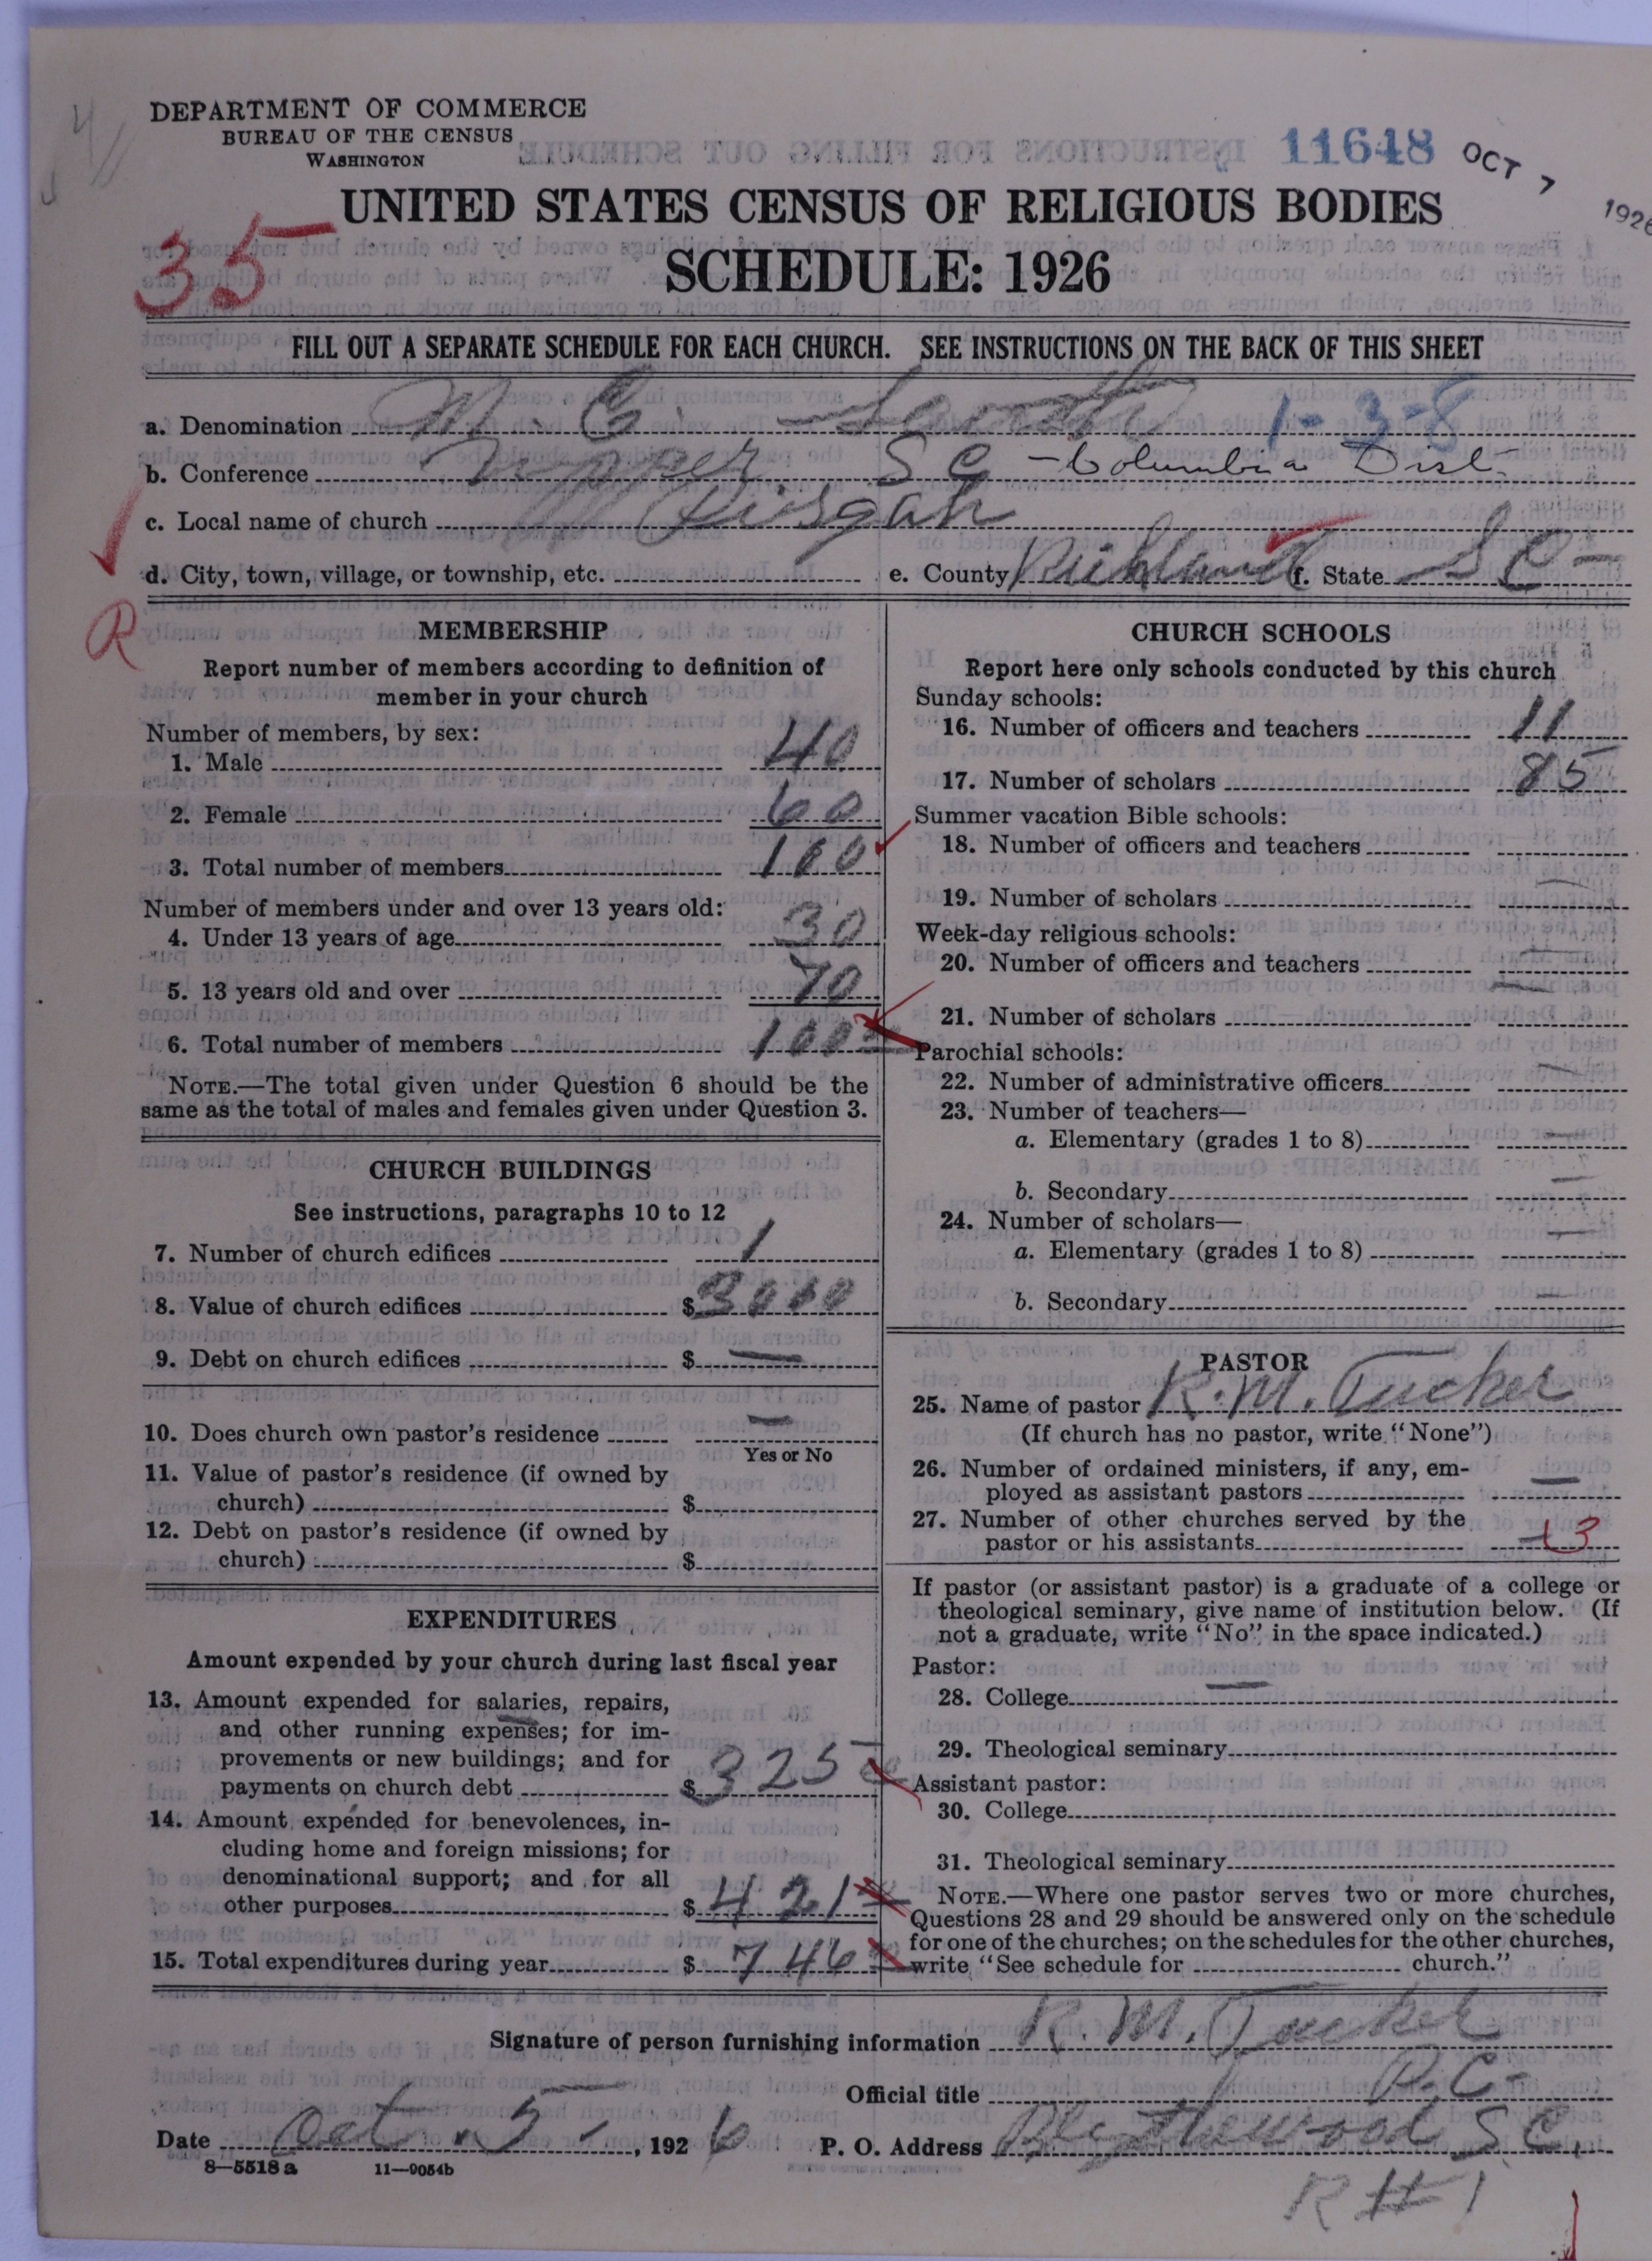 DEPARTMENT OF COMMERCE
BUREAU OF THE CENSUS
WASHINGTON
11648 OCT 7 1926
UNITED STATES CENSUS OF RELIGIOUS BODIES
35
SCHEDULE: 1926
FILL OUT A SEPARATE SCHEDULE FOR EACH CHURCH. SEE INSTRUCTIONS ON THE BACK OF THIS SHEET
a. Denomination M. E. South 1-3-8
b. Conference Upper S C - Columbia Dist.
c. Local name of church Pisgah
d. City, town, village, or township, etc. e. County Richland f. State S C -
R
MEMBERSHIP
Report number of members according to definition of
member in your church
Number of members, by sex:
1. Male 40
2. Female 60
3. Total number of members 100
Number of members under and over 13 years old:
4. Under 13 years of age 30
5. 13 years old and over 70
6. Total number of members 100
NOTE.—The total given under Question 6 should be the
same as the total of males and females given under Question 3.
CHURCH BUILDINGS
See instructions, paragraphs 10 to 12
7. Number of church edifices 1
8. Value of church edifices $ 3000
9. Debt on church edifices $ —
10. Does church own pastor's residence —
Yes or No
11. Value of pastor's residence (if owned by
church) $
12. Debt on pastor's residence (if owned by
church) $
EXPENDITURES
Amount expended by your church during last fiscal year
13. Amount expended for salaries, repairs,
and other running expenses; for im-
provements or new buildings; and for
payments on church debt $ 325
14. Amount expended for benevolences, in-
cluding home and foreign missions; for
denominational support; and for all
other purposes $ 421
15. Total expenditures during year $ 746
CHURCH SCHOOLS
Report here only schools conducted by this church
Sunday schools:
16. Number of officers and teachers 11
17. Number of scholars 85
Summer vacation Bible schools:
18. Number of officers and teachers
19. Number of scholars —
Week-day religious schools:
20. Number of officers and teachers —
21. Number of scholars —
Parochial schools:
22. Number of administrative officers —
23. Number of teachers—
a. Elementary (grades 1 to 8) —
b. Secondary —
24. Number of scholars—
a. Elementary (grades 1 to 8) —
b. Secondary —
PASTOR
25. Name of pastor R. M. Tucker
(If church has no pastor, write "None")
26. Number of ordained ministers, if any, em-
ployed as assistant pastors —
27. Number of other churches served by the
pastor or his assistants 3
If pastor (or assistant pastor) is a graduate of a college or
theological seminary, give name of institution below. (If
not a graduate, write "No" in the space indicated.)
Pastor:
28. College —
29. Theological seminary
Assistant pastor:
30. College
31. Theological seminary
NOTE.—Where one pastor serves two or more churches,
Questions 28 and 29 should be answered only on the schedule
for one of the churches; on the schedules for the other churches,
write "See schedule for church."
Signature of person furnishing information R. M. Tucker
Official title P. C-
Date Oct. 5-, 1926 P. O. Address Blythewood S C.
8—5518 a 11—9054b
R # 1